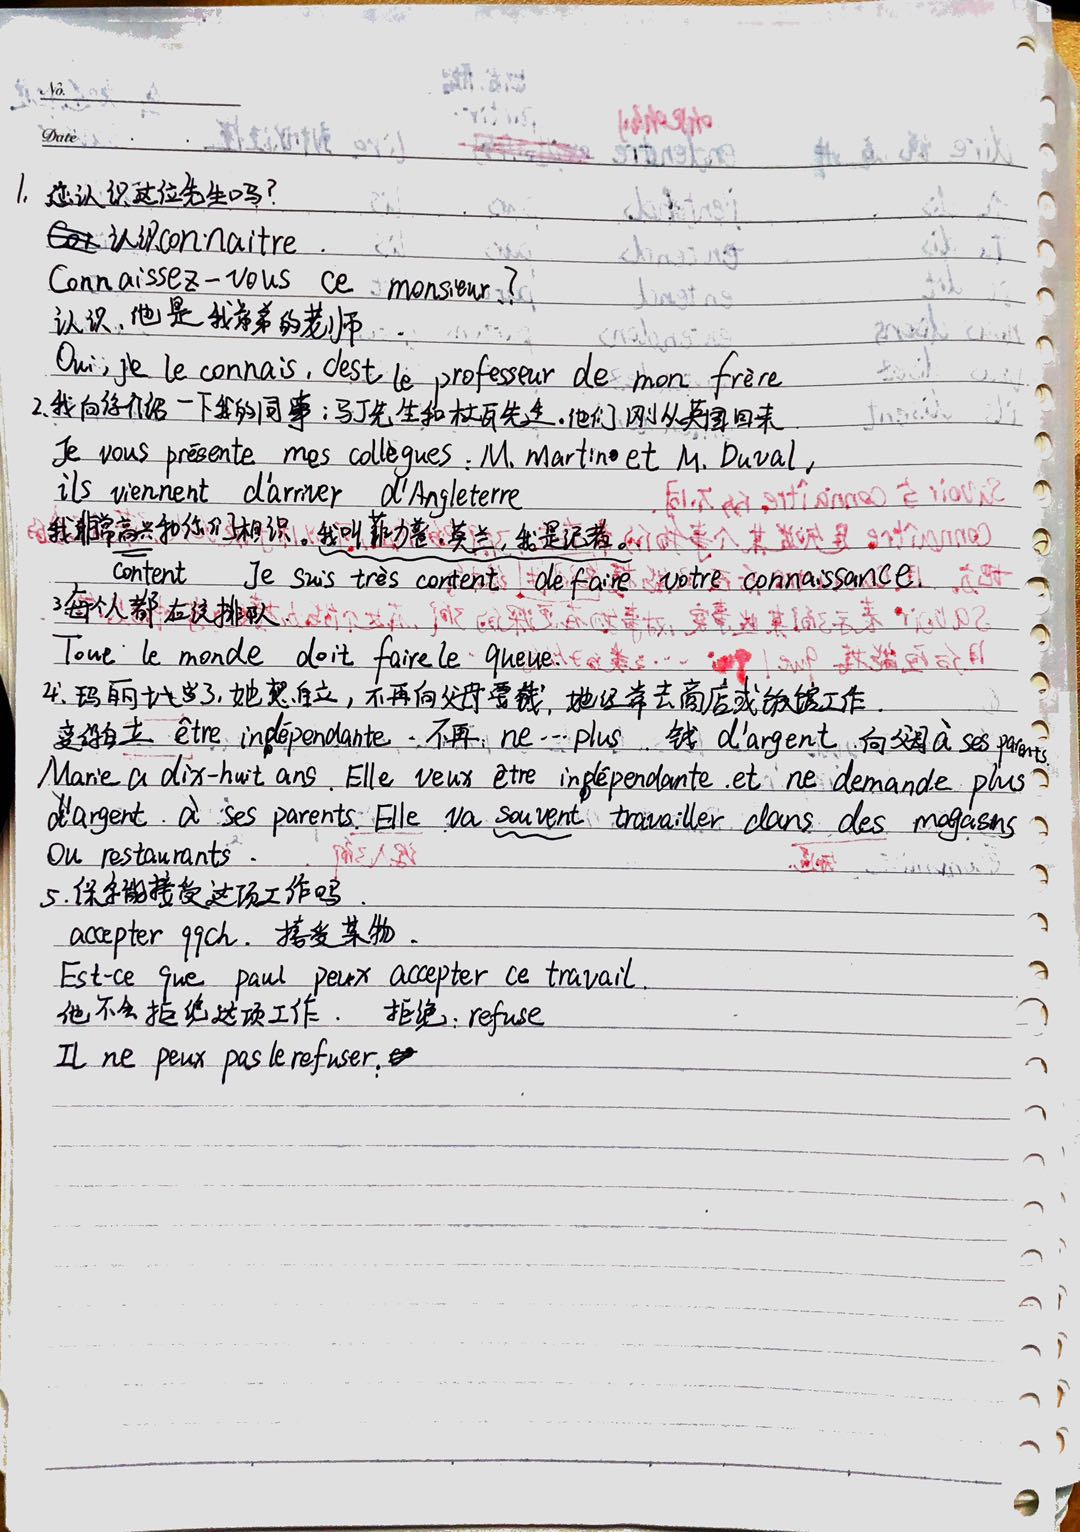 No.
Date
1. 您认识这位先生吗?
认识connaitre.
Connaissez-vous ce monsieur?
认识,他是我弟弟的老师.
Oui, je le connais, c'est le professeur de mon frère
2.我向你介绍一下我的同事:马丁先生和杜瓦先生.他们刚从英国回来
Je vous présente mes collègues: M. Martin et M. Duval,
ils viennent d'arriver d'Angleterre
我非常高兴和你们相识。我叫菲力普·莫兰,我是记者。
content Je suis très content de faire votre connaissance.
3.每个人都在这排队
Tout le monde doit faire le queue.
4.玛丽18岁了,她想自立,不再向父母要钱,她经常去商店或饭馆工作.
变得自立 être indépendante. 不再: ne … plus 钱 d'argent 向父母à ses parents.
Marie a dix-huit ans. Elle veux être indépendante et ne demande plus
d'argent à ses parents. Elle va souvent travailler dans des magasins
Ou restaurants.
5.保尔能接受这项工作吗.
accepter qqch. 接受某物.
Est-ce que paul peux accepter ce travail.
他不会拒绝这项工作. 拒绝: refuse
Il ne peux pas le refuser.